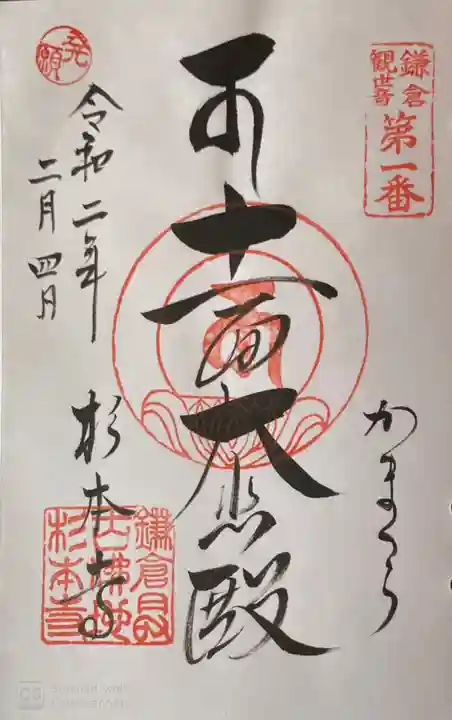 鎌倉
観世音
第一番
かまくら
十一面大悲殿
発願
令和二年
二月四日
杉本寺
鎌倉最
古仏地
杉本寺